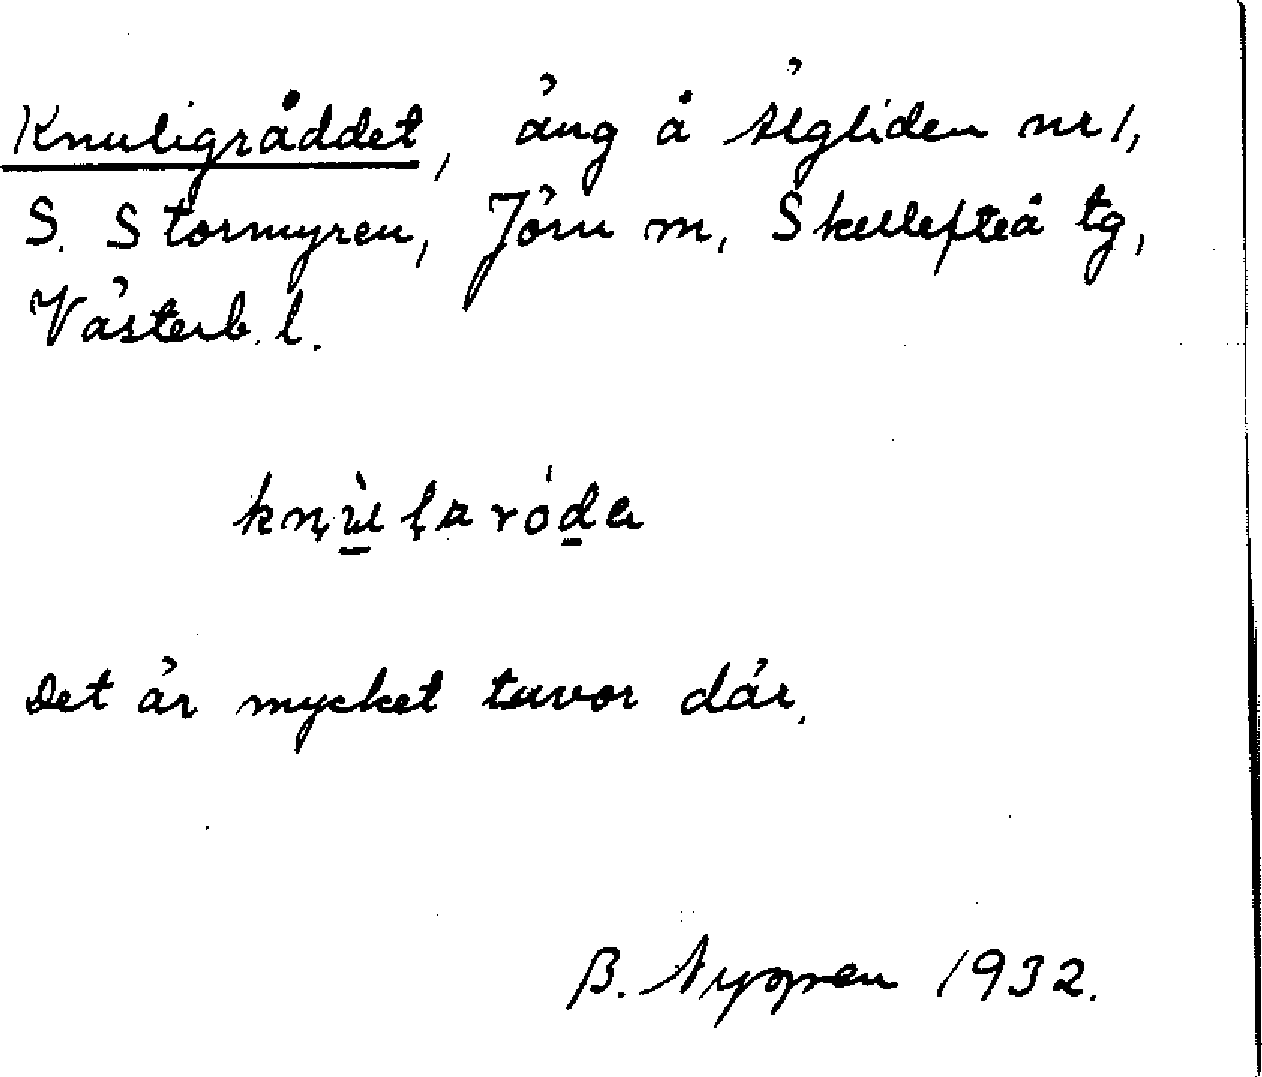 Knuligråddet, äng å Älgliden nr 1,
S. Stormyren, Jörn sn, Skellefteå tg,
Västerb. l.
Det är mycket tuvor där.
B. 1932.